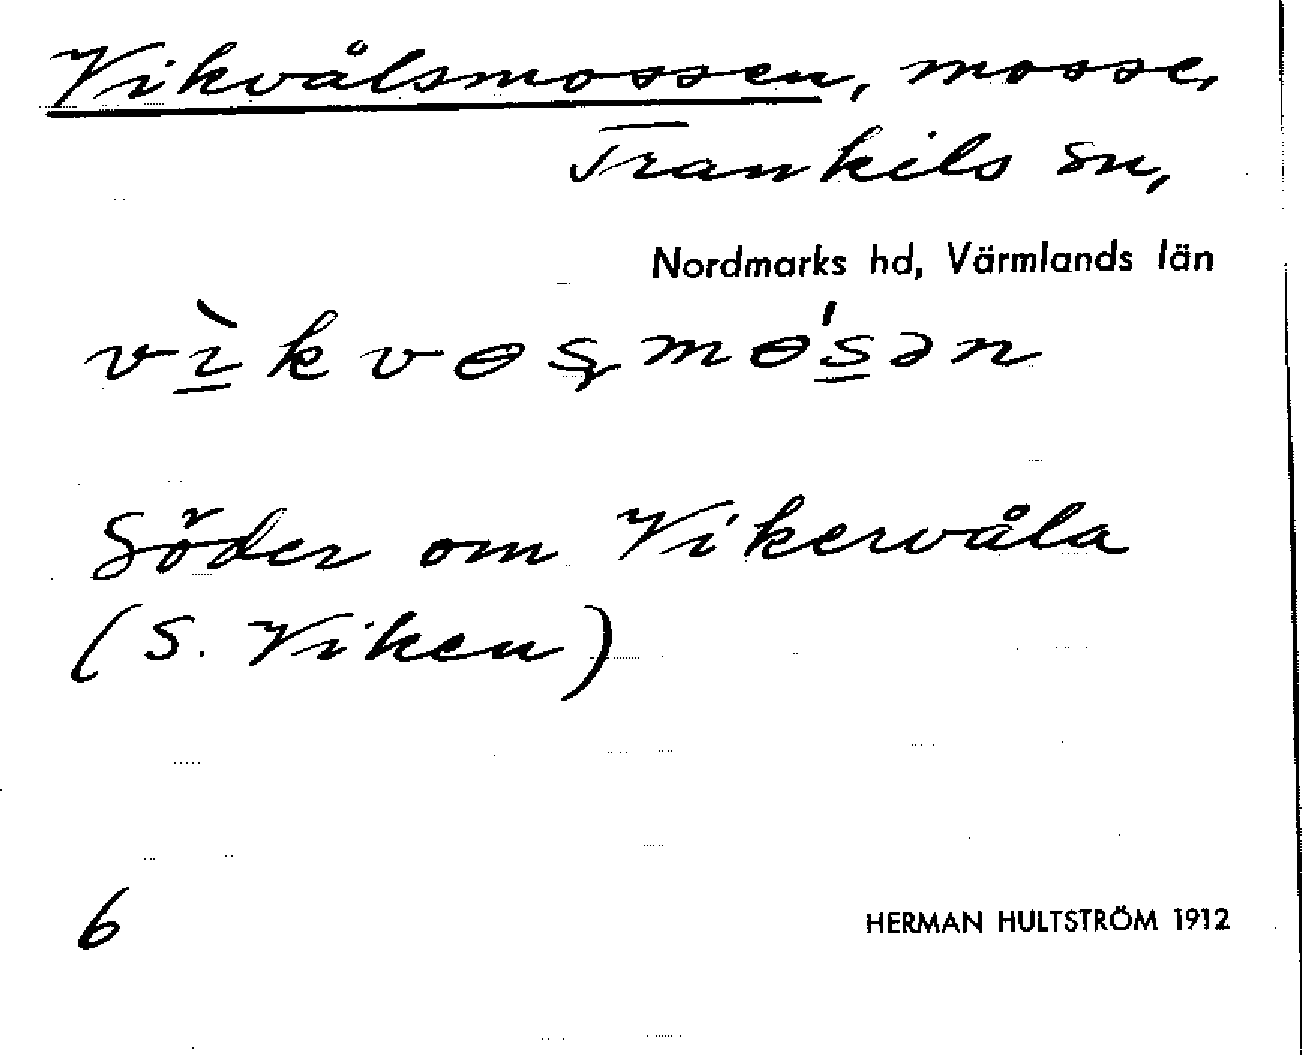 Vikvålsmossen, mosse,
Trankils sn,
Nordmarks hd, Värmlands län
vìkvɵʂmɵ́sən
Söder om Vikervåla
(S. Viken)
6
HERMAN HULTSTRÖM 1912